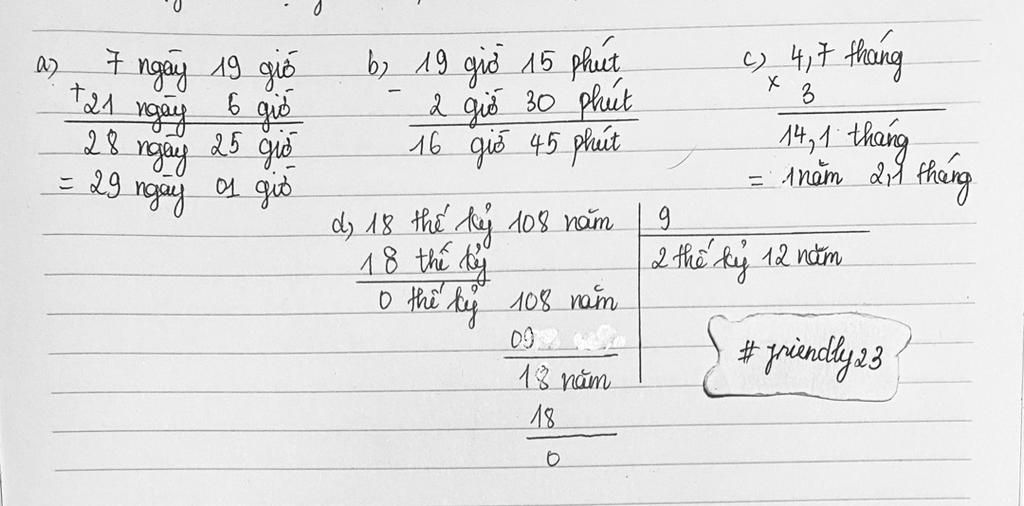 a) 7 ngày 19 giờ
+ 21 ngày 6 giờ
28 ngày 25 giờ
= 29 ngày 01 giờ
b) 19 giờ 15 phút
- 2 giờ 30 phút
16 giờ 45 phút
c) 4,7 tháng
x 3
14,1 tháng
= 1 năm 2,1 tháng
d) 18 thế kỷ 108 năm | 9
18 thế kỷ | 2 thế kỷ 12 năm
0 thế kỷ 108 năm
09
18 năm
18
0
# friendly23